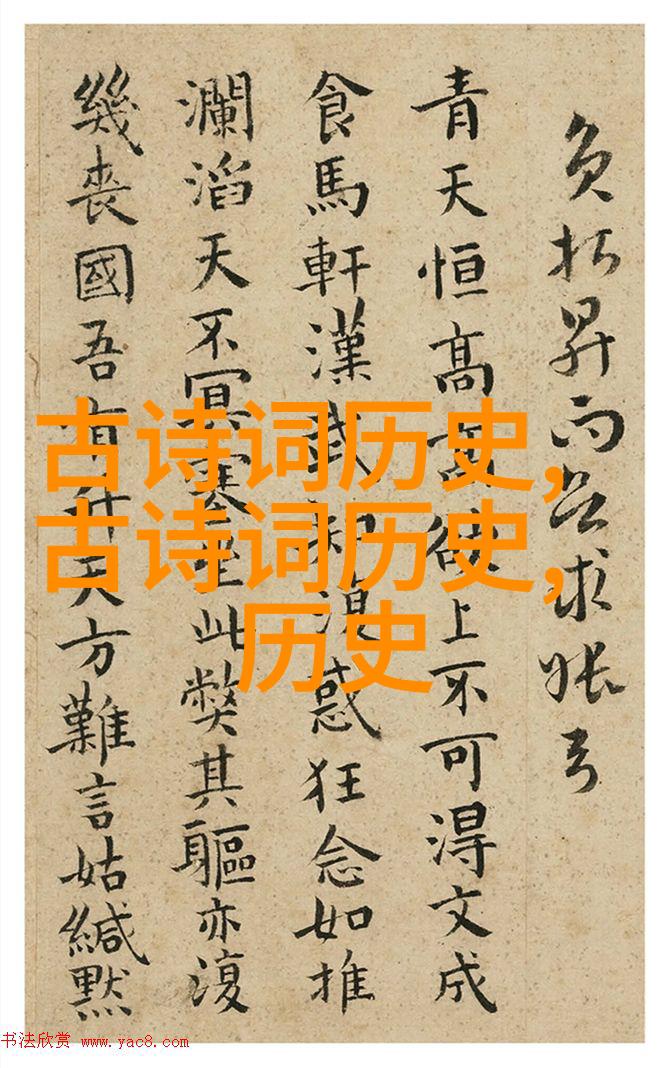 負昇而求
青天恒高高欲上不可得文成
食馬軒漢武復惑狂念如推
瀾滔天不冥塞坐此獘其軀亦復
幾喪國吾有升天方難言姑緘默
古诗词历史,
古诗词历史,
历史
书法欣赏 www.yac8.com